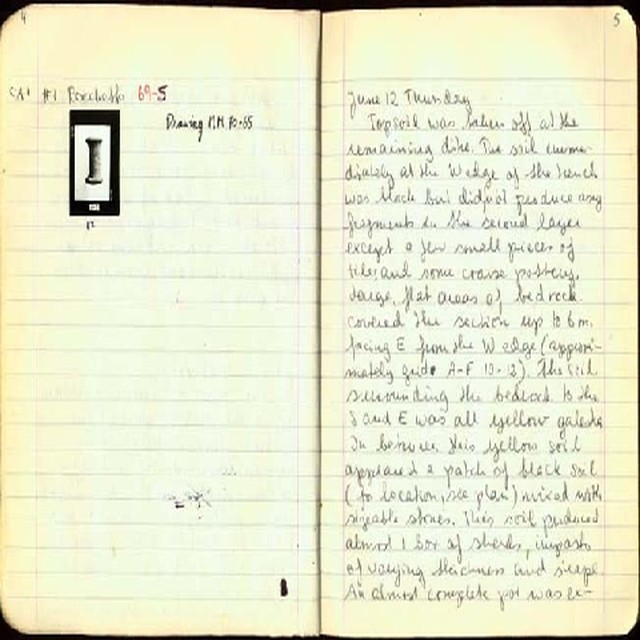 4
Cat #1 Rocchetto 69-5
Drawing M.M. 70-55
#2
5
June 12 Thursday
Topsoil was taken off at the
remaining dike. The soil imme-
diately at the W edge of the trench
was black but did not produce any
fragments in the second layer
except a few small pieces of
tile, and some coarse pottery.
Large, flat areas of bedrock
covered the section up to 6 m.
facing E from the W edge (approxi-
mately grids A-F 10-12). The soil
surrounding the bedrock to the
S and E was all yellow galestra
In between this yellow soil
appeared a patch of black soil
(for location, see plan) mixed with
sizeable stones. This soil produced
almost 1 box of sherds, impasto
of varying thickness and shape.
An almost complete pot was ex-